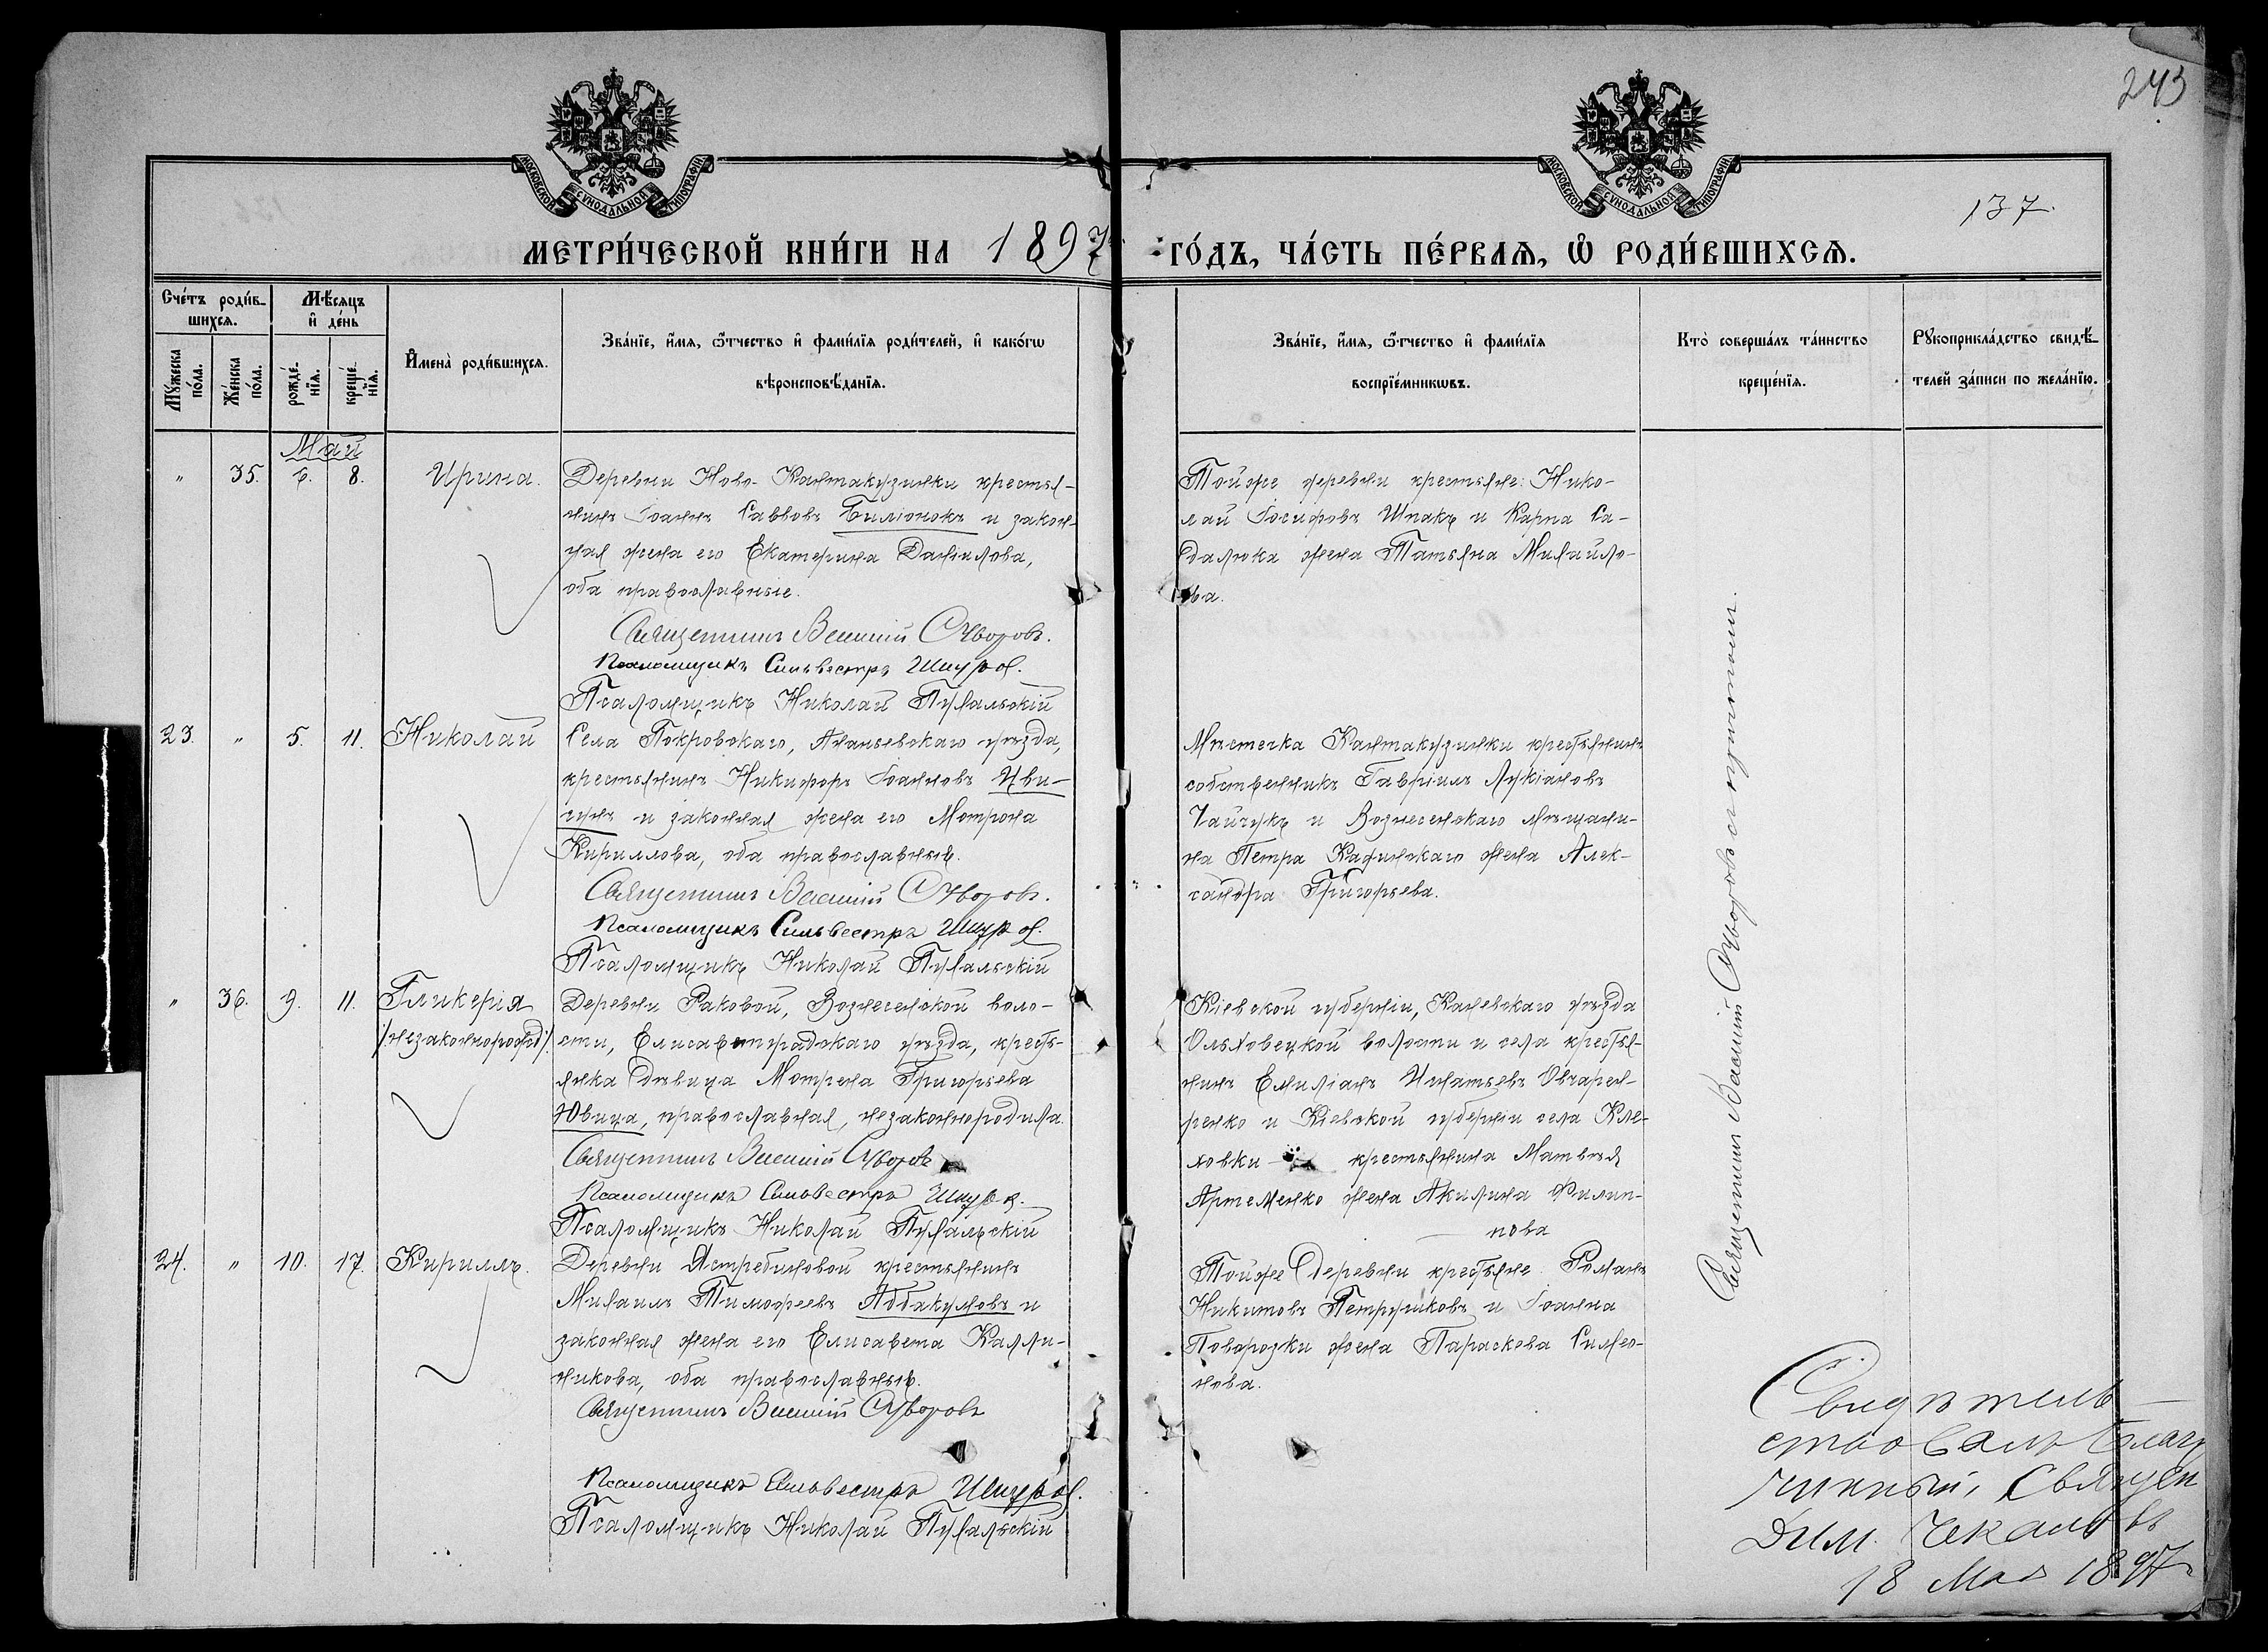 243
137.
МОСКОВСКОЙ СѴНОДАЛЬНОЙ ТИПОГРАФІИ
МОСКОВСКОЙ СѴНОДАЛЬНОЙ ТИПОГРАФІИ
МЕТРИ́ЧЕСКОЙ КНИ́ГИ НА 1897 ГО́ДЪ, ЧА́СТЬ ПЕ́РВАѦ, Ѡ҆ РОДИ́ВШИХСѦ.
Сче́тъ роди́в-
шихсѧ.
Мꙋ́жеска
по́ла.
Же́нска
по́ла.
Мѣ́сѧцъ
и҆ де́нь
рожде́-
нїѧ.
креще́-
нїѧ.
И҆мена̀ роди́вшихсѧ.
Зва́нїе, и҆́мѧ, ѻ҆́тчество и҆ фами́лїѧ роди́телей, и҆ како́гѡ
вѣроисповѣ́данїѧ.
Зва́нїе, и҆́мѧ, ѻ҆́тчество и҆ фами́лїѧ
воспрїе́мникѡвъ.
Кто̀ соверша́лъ та́инство
креще́нїѧ.
Рꙋкоприкла́дство свидѣ́-
телей за́писи по жела́нїю.
Май
" 35. 6. 8. Ирина.
Деревни Ново-Кантакузинки крестья-
нинъ Іоаннъ Саввовъ Биліонокъ и закон-
ная жена его Екатерина Даніилова,
оба православные.
Священникъ Василій Суворовъ.
Псаломщикъ Сильвестръ
Псаломщикъ Николай Пухальскій
Тойже деревни крестьяне: Нико-
лай Іосифовъ Шпакъ и Карпа Са-
далюка жена Татьяна Михайло-
ва.
23. " 5. 11. Николай
Села Покровскаго, Ананьевскаго уѣзда,
крестьянинъ Никифоръ Іоанновъ Цви-
гунъ и законная жена его Мотрона
Кириллова, оба православные.
Священникъ Василій Суворовъ.
Псаломщикъ Сильвестръ
Псаломщикъ Николай Пухальскій
Мѣстечка Кантакузинки крестьянинъ
собственникъ Гавріилъ Лукіановъ
Чайчукъ и Вознесенскаго мѣщани-
на Петра жена Алек-
сандра Григорьева.
" 36. 9. 11. Гликерія
/:незаконнорожд:/
Деревни Раковой, Вознесенской воло-
сти, Елисаветградскаго уѣзда, кресть-
янка дѣвица Мотрена Григорьева
Ювица, православная, незаконнородила.
Священникъ Василій Суворовъ
Псаломщикъ Сильвестръ
Псаломщикъ Николай Пухальскій
Кіевской губерніи, Каневскаго уѣзда
Ольховецкой волости и села крестья-
нинъ Емиліанъ Игнатьевъ Овчарен-
ренко и Кіевской губерніи села Кле-
ховки крестьянина Матвѣя
Артеменко жена Акилина Филип-
пова
24. " 10. 17. Кириллъ.
Деревни Ястребиновой крестьянинъ
Михаилъ Тимофеевъ Аббакумовъ и
законная жена его Елисавета Калли-
никова, оба православные.
Священникъ Василій Суворовъ
Псаломщикъ Сильвестръ
Псаломщикъ Николай Пухальскій
Тойже деревни крестьяне Романъ
Никитовъ Петрушковъ и Іоанна
Поворозки жена Параскева Симео-
нова.
Священникъ Василій Суворовъ съ причтомъ.
Свидѣтель-
ствовалъ Благо
чинный, Священ
Дим. Чекановъ
18 Мая 1897